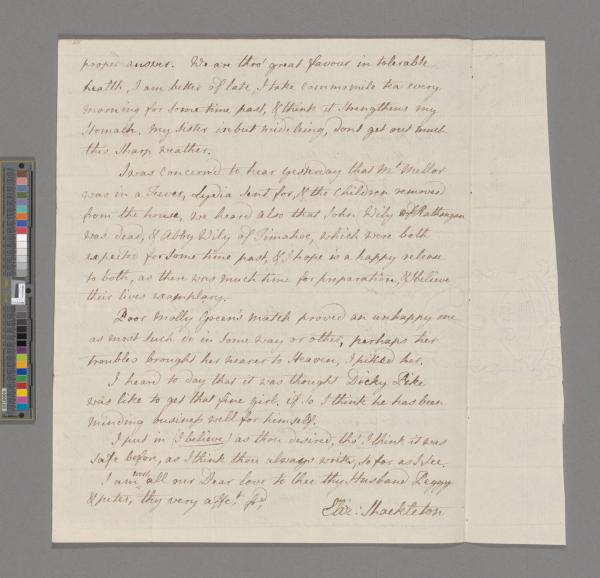 proper answer. We are thro' great favour in tolerable
health, I am better of late, I take cammomile tea every
morning for some time past, & think it strengthens my
stomach. my sister is but midd leing, dont get out much
this sharp weather.
I was concerned to hear yesterday that Mr. Mellor
was in a Fever, Lydia sent for, & the children removed
from the house, we heard also that John Wily of Rathangan
was dead, & Abby Wily of Timahoe, which were both
expected for some time past, & I hope is a happy release
to both, as there was much time for preparation, & I believe
their lives exemplary.
Poor Molly Green's match proved an unhappy one
as most such do in some way or other, perhaps her
troubles brought her nearer to Heaven, I pitied her.
I heard to day that it was thought Dicky Pike
was like to get that fine girl. if so I think he has been
minding business well for himself.
I put in (I believe) as thou desired, tho' I think it was
safe before, as I think thou always writes, so far as I see.
I am with all our Dear love to thee thy Husband Peggy
& peter, thy very affect. frd,
Eliz: Shackleton